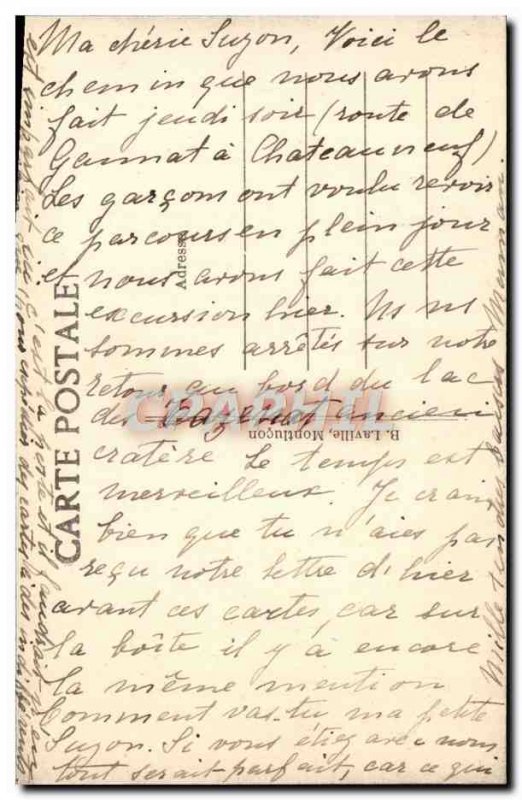 Ma chérie Suzon, Voici le
chemin que nous avons
fait jeudi soir (route de
Gannat à Chateauneuf)
Les garçons ont voulu revoir
ce parcours en plein jour
et nous avons fait cette
excursion hier. Ns ns
sommes arrêtés sur notre
retour au bord du lac
de Tazenat ancien
cratère Le temps est
merveilleux. Je crains
bien que tu n'aies pas
reçu notre lettre d'hier
avant ces cartes, car sur
la boîte il y a encore
la même mention
Comment vas-tu ma petite
Suzon. Si vous étiez avec nous
tout serait parfait, car ce qui
est c'est la
Mille tendres baisers Maman
CARTE POSTALE
Adresse
B. Laville, Montluçon
CRAPHIL